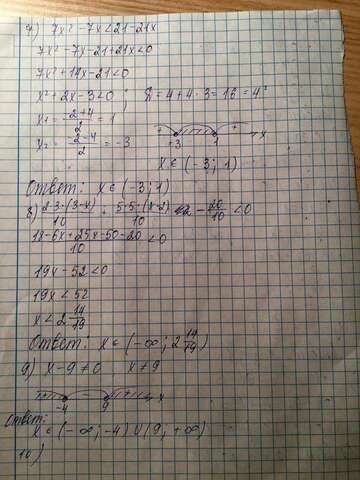 7) 7x² - 7x < 21 - 21x
7x² - 7x - 21 + 21x < 0
7x² + 14x - 21 < 0
x² + 2x - 3 < 0 ; D = 4 + 4 · 3 = 16 = 4²
x₁ = (-2+4)/2 = 1
x₂ = (-2-4)/2 = -3
+ - + x
+3 1
x ∈ (-3; 1)
Ответ: x ∈ (-3; 1)
8) 2·3·(3-x)/10 + 5·5·(x-2)/10 - 20/10 < 0
(18-6x+25x-50-20)/10 < 0
19x - 52 < 0
19x < 52
x < 2 14/19
Ответ: x ∈ (-∞; 2 14/19)
9) x - 9 ≠ 0 x ≠ 9
+ - + x
-4 9
Ответ:
x ∈ (-∞; -4) ∪ (9; +∞)
10)